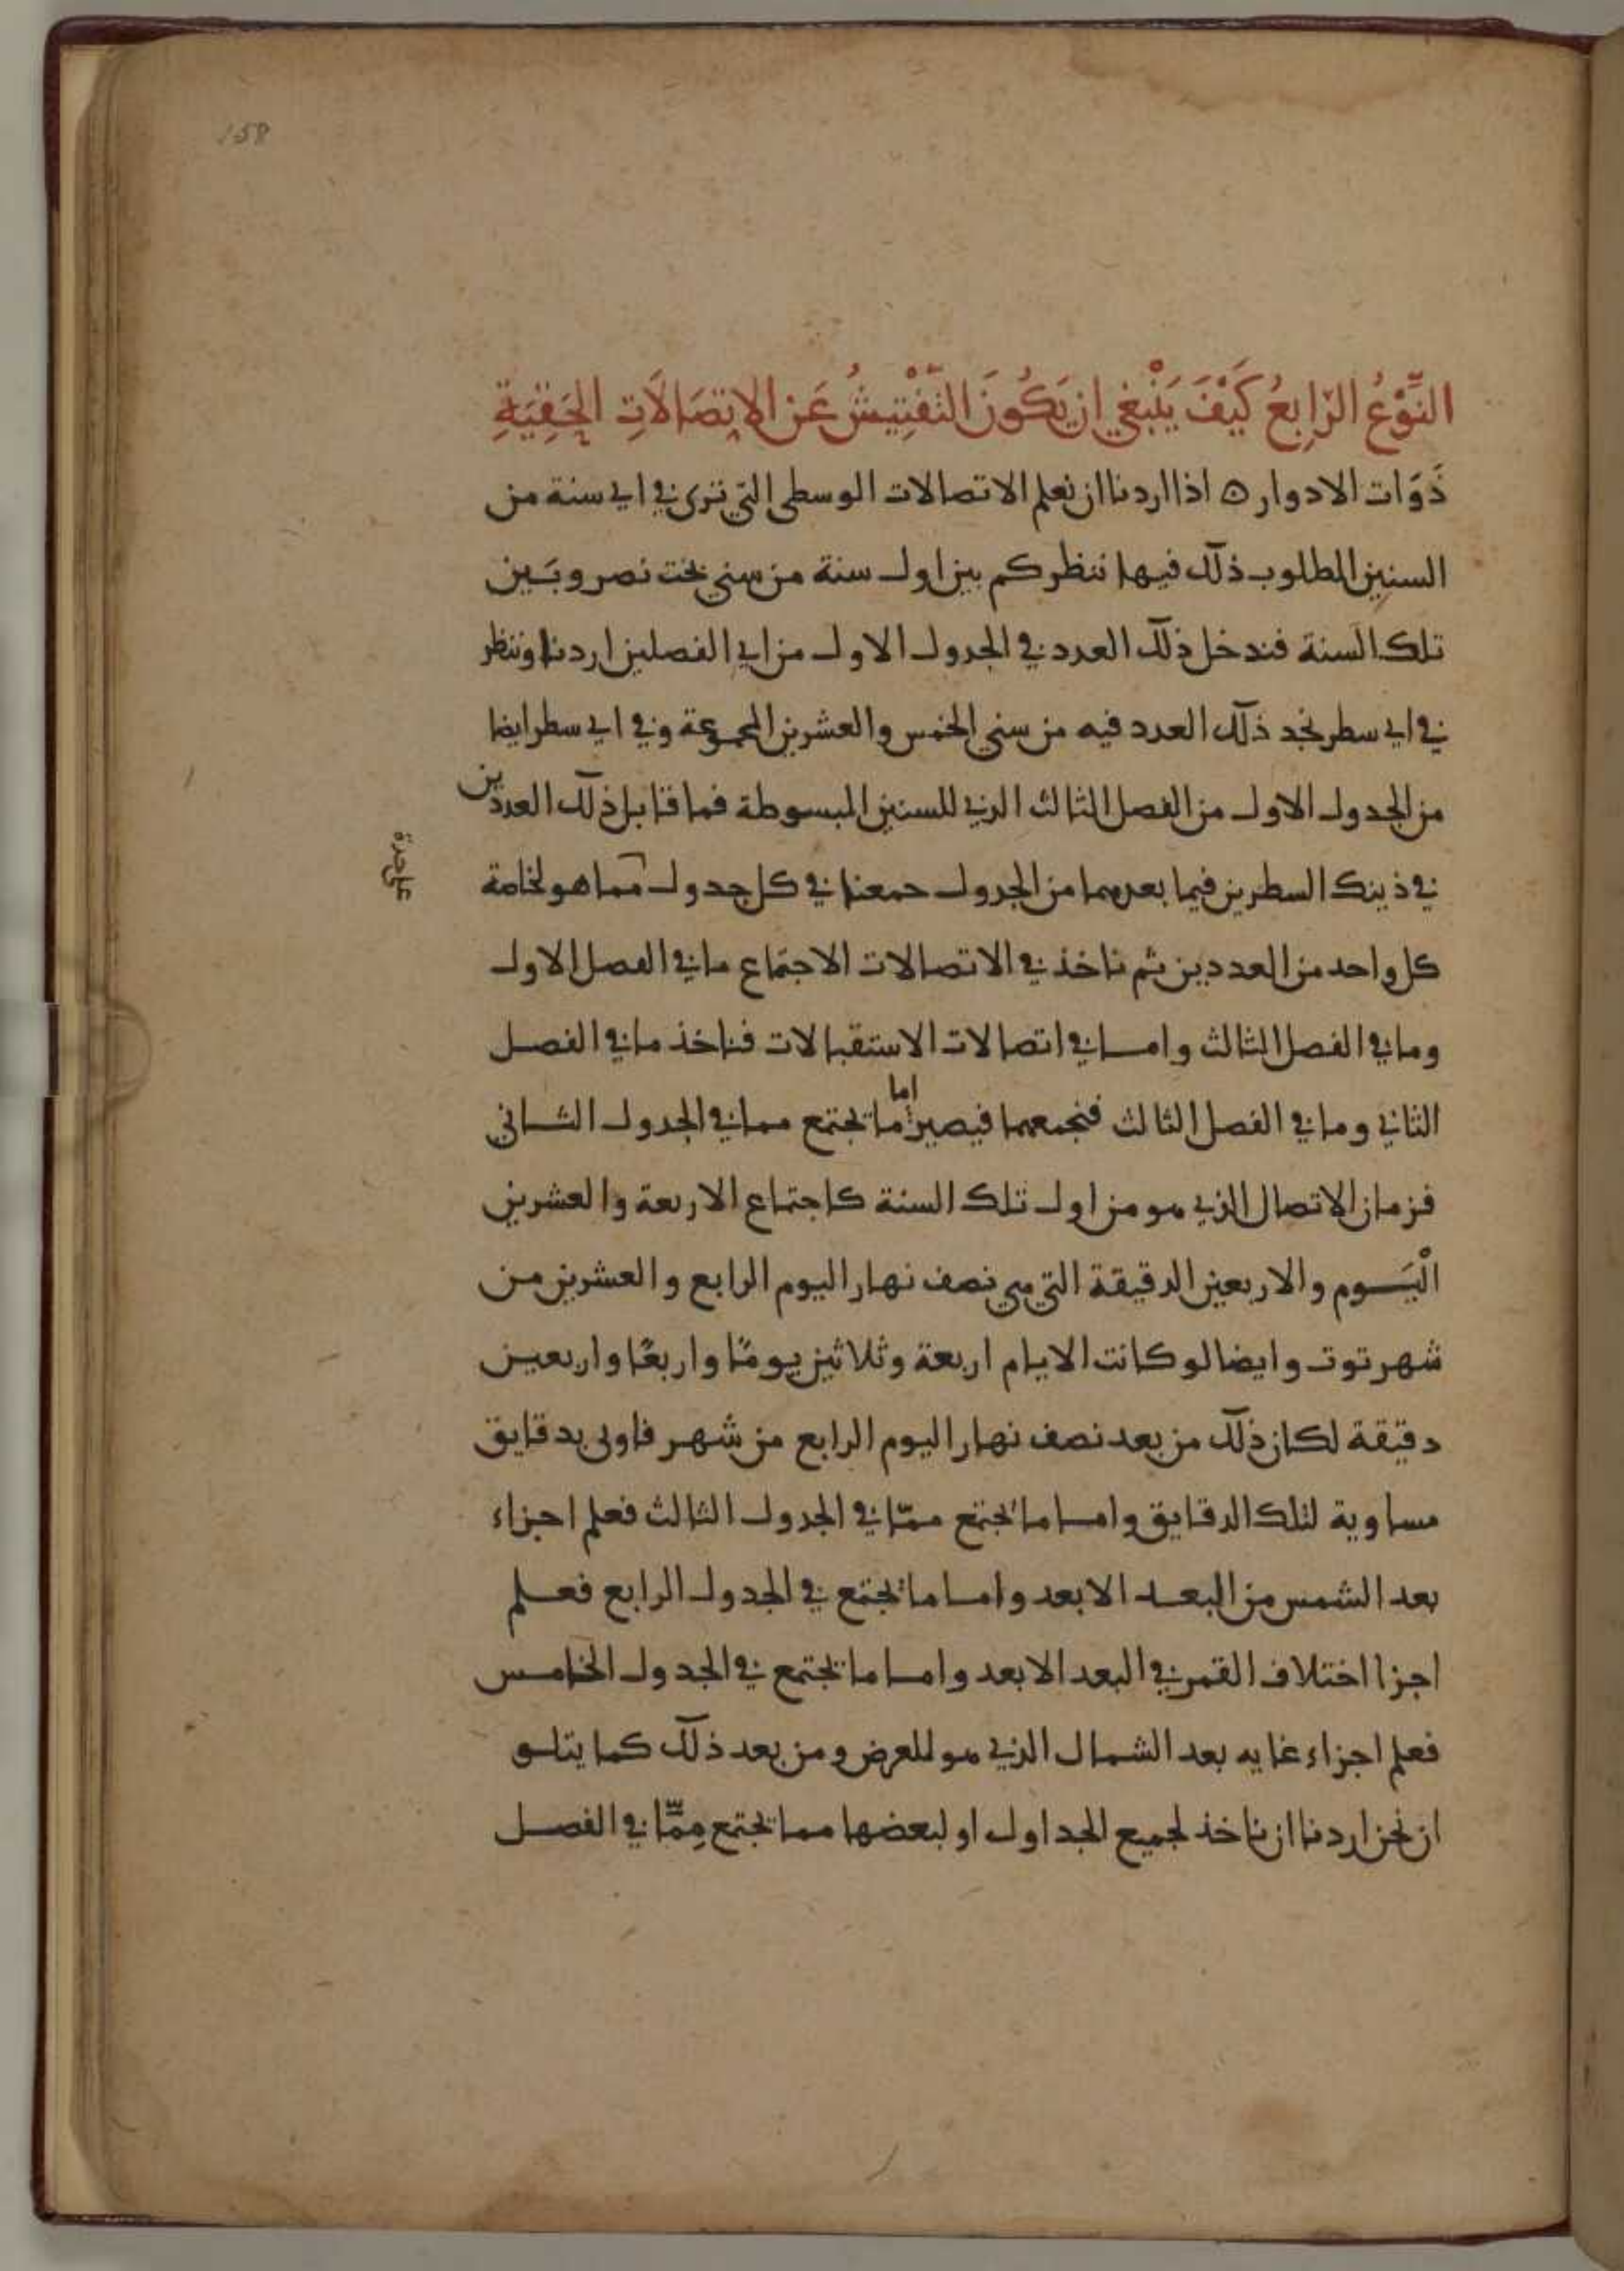 158
النَّوْعُ الرّابِعُ كَيْفَ يَنْبغي ان يَكُونَ التَّفْتِيشُ عَن الاتِصَالَاتِ الحَقِيَةِ
ذَوَات الادوار ه اذا اردنا ان نعلم الاتصالات الوسطى التي ترى في اي سنة من
السنين المطلوب ذلك فيها ننظر كم بين اول سنة من سني بخت نصر وبَين
تلك السنة فندخل ذلك العدد في الجدول الاول من اي الفصلين اردنا وننظر
في اي سطر نجد ذلك العدد فيه من سني الخمس والعشرين المجموعة وفي اي سطر ايضا
من الجدول الاول من الفصل الثالث الذي للسنين المبسوطة فما قابل ذلك العددين
في ذينك السطرين فيما بعدهما من الجدول جمعنا في كل جدول مما هو لخاصة
على حدة
كل واحد من العددين ثم ناخذ في الاتصالات الاجتماع ما في الفصل الاول
وما في الفصل الثالث واما في اتصالات الاستقبالات فناخذ ما في الفصل
الثاني وما في الفصل الثالث فنجمعهما فيصير اما ما تجتمع مما في الجدول الثاني
فزمان الاتصال الذي هو من اول تلك السنة كاجتماع الاربعة والعشرين
الْيَوم والاربعين الدقيقة التي هي نصف نهار اليوم الرابع والعشرين من
شهر توت وايضا لو كانت الايام اربعة وثلاثين يومًا واربعًا واربعين
دقيقة لكان ذلك من بعد نصف نهار اليوم الرابع من شهر فاوفى بدقايق
مساوية لتلك الدقايق واما ما تجتمع ممّا في الجدول الثالث فعلم اجزاء
بعد الشمس من البعد الابعد واما ما تجتمع في الجدول الرابع فعلم
اجزا اختلاف القمر في البعد الابعد واما ما تجتمع في الجدول الخامس
فعلم اجزاء غايه بعد الشمال الذي هو للعرض ومن بعد ذلك كما يتلو
ان نحن اردنا ان ناخذ لجميع الجداول او لبعضها مما تجتمع مِمّا في الفصل